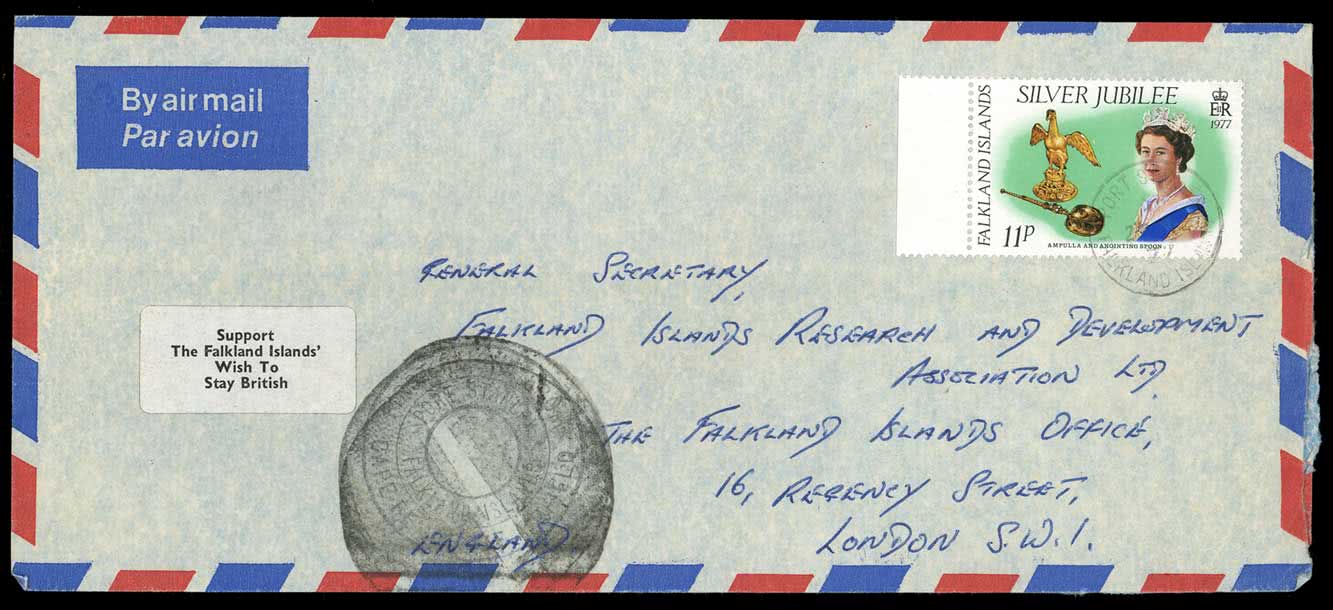 By air mail
Par avion
SILVER JUBILEE
EIIR
1977
FALKLAND ISLANDS
11P
AMPULLA AND ANOINTING SPOON
PORT
FALKLAND ISLANDS
GENERAL SECRETARY,
FALKLAND ISLANDS RESEARCH AND DEVELOPMENT
ASSOCIATION LTD
THE FALKLAND ISLANDS OFFICE,
16, REGENCY STREET,
LONDON S.W.1.
ENGLAND
Support
The Falkland Islands'
Wish To
Stay British